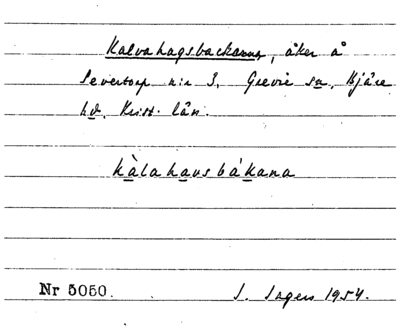 Kalvahagsbackarna, åker å
Sevestorp n:r 3, Grevie sn, Bjäre
hd. Krist. län.
kàlahavsbákana
Nr 5050. J. Ingers 1954.